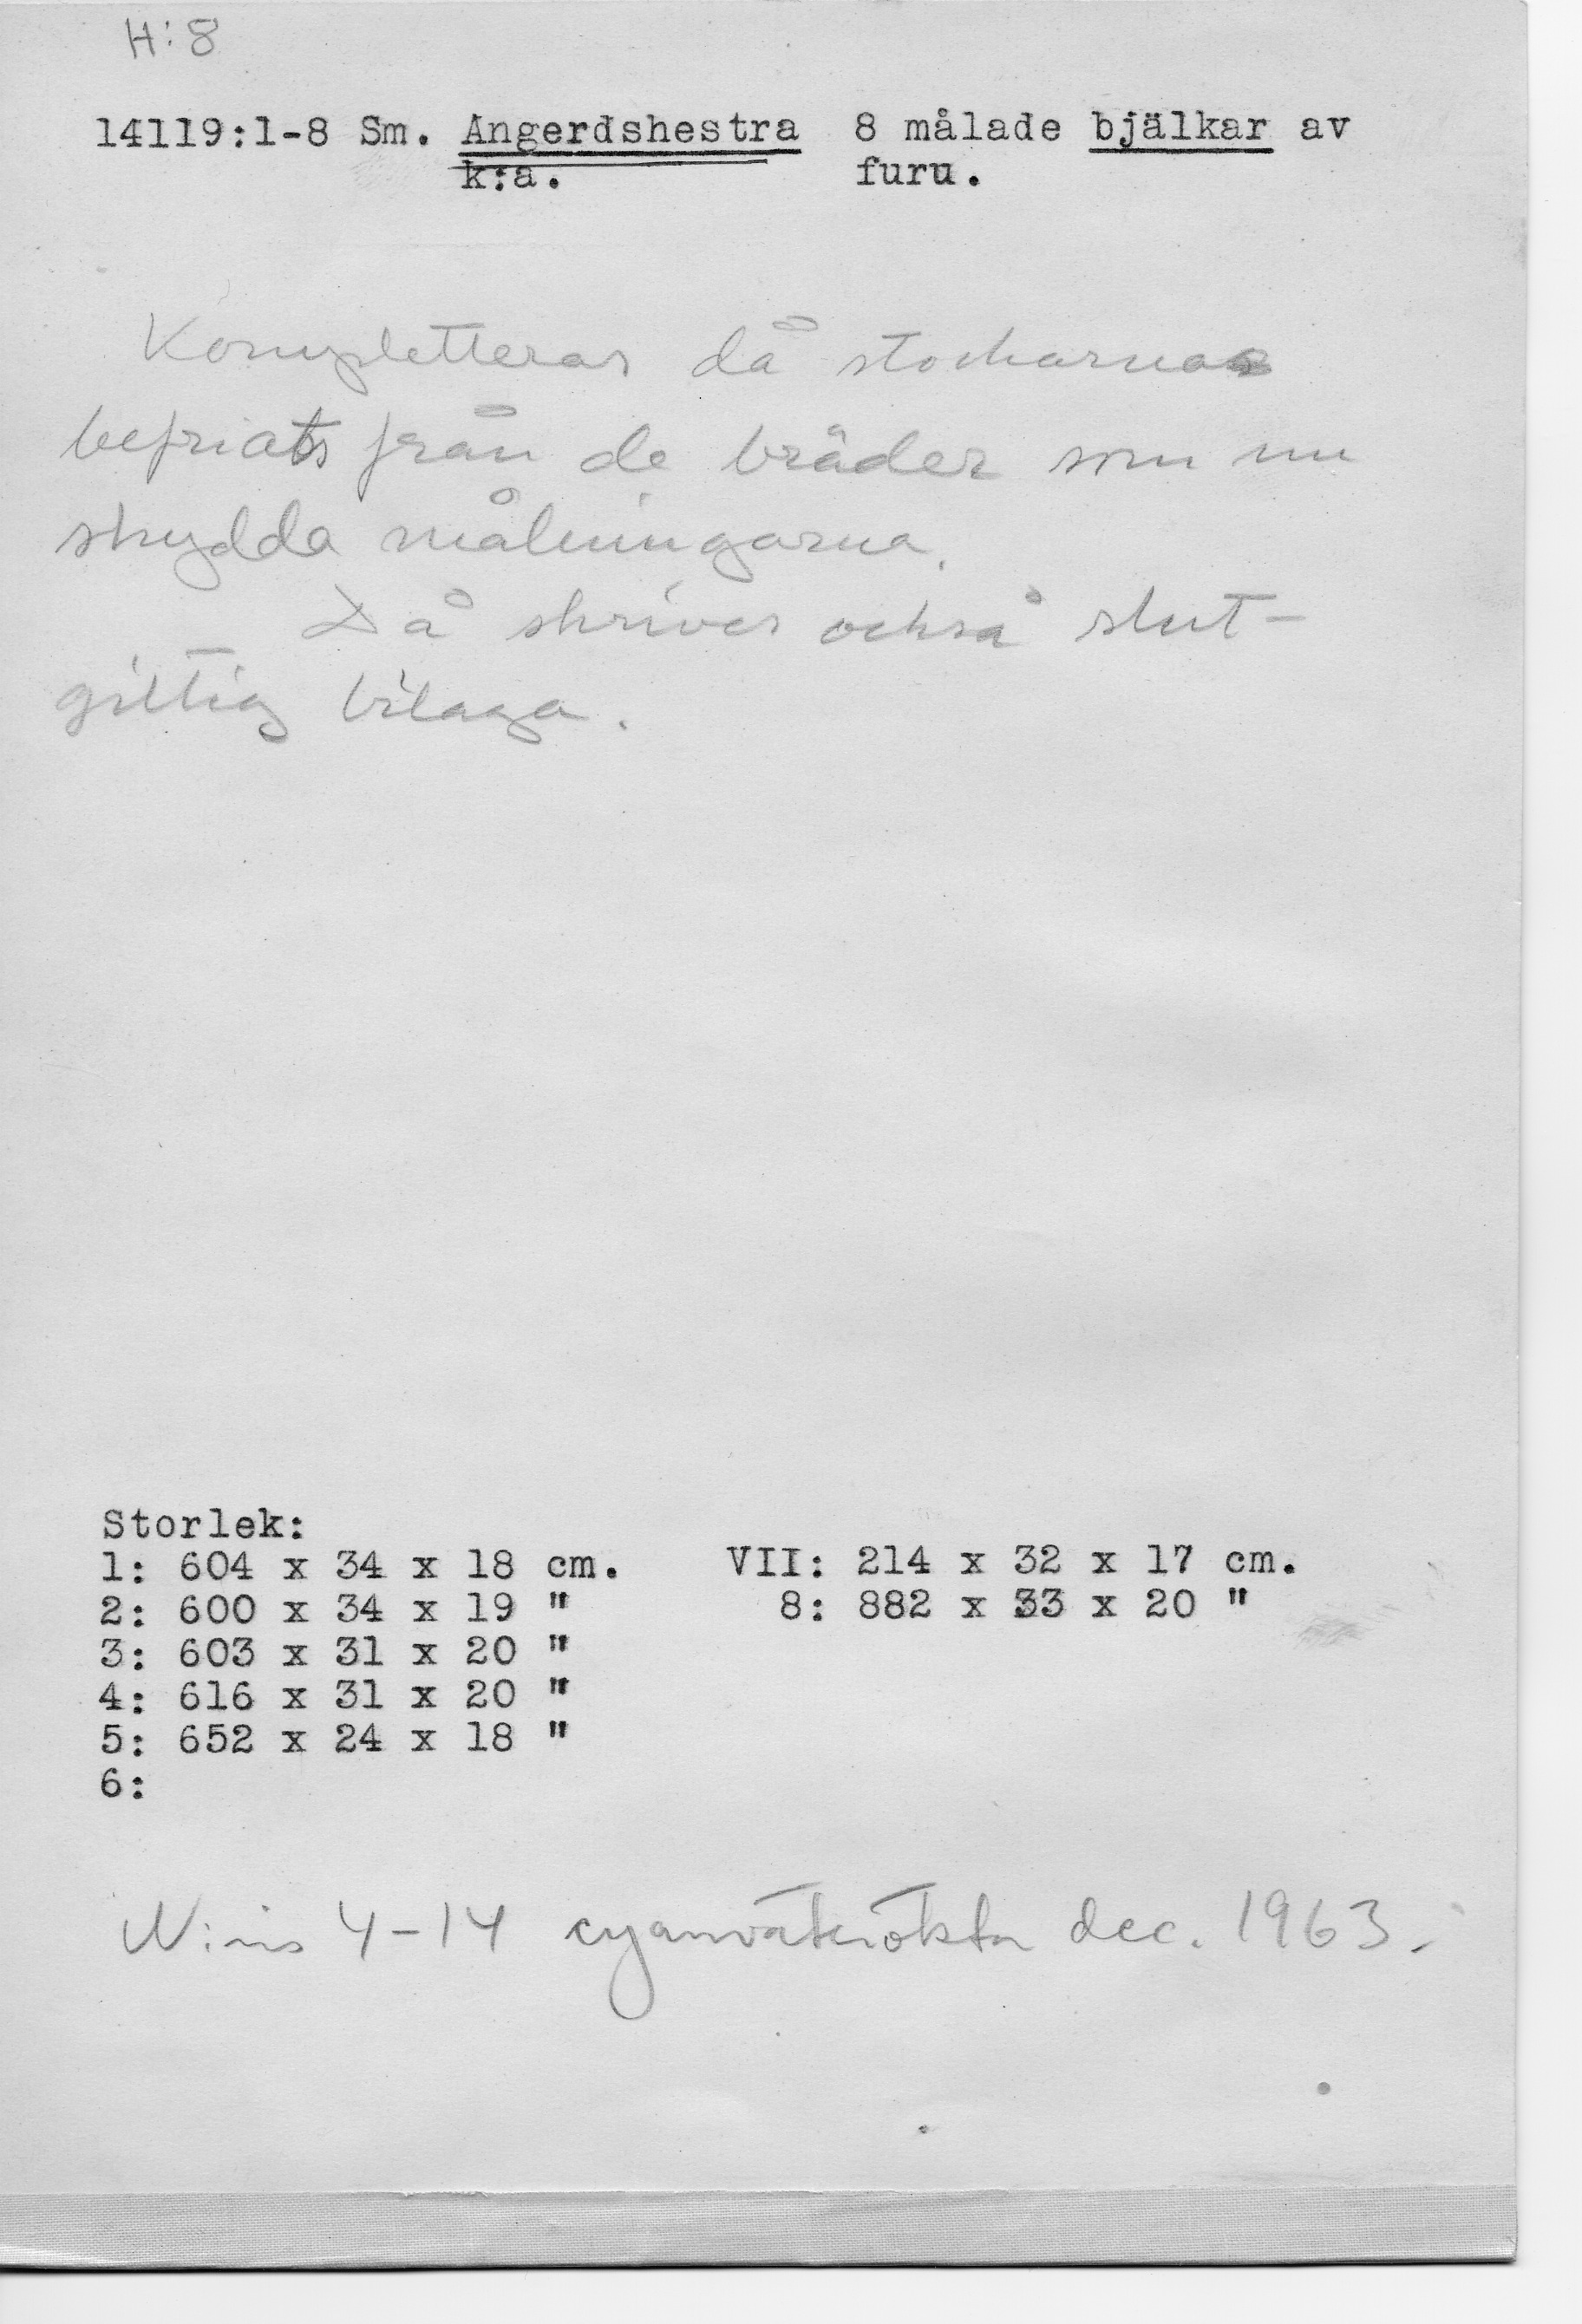 H:8
14119:1-8 Sm. Angerdshestra 8 målade bjälkar av
k:a. furu.
Kompletteras då stockarna
befriats från de bräder som nu
skydda målningarna.
Då skrives också slut-
giltig bilaga.
Storlek:
1: 604 x 34 x 18 cm. VII: 214 x 32 x 17 cm.
2: 600 x 34 x 19 " 8: 882 x 33 x 20 "
3: 603 x 31 x 20 "
4: 616 x 31 x 20 "
5: 652 x 24 x 18 "
6:
4-14 cyanväterökta dec. 1963.